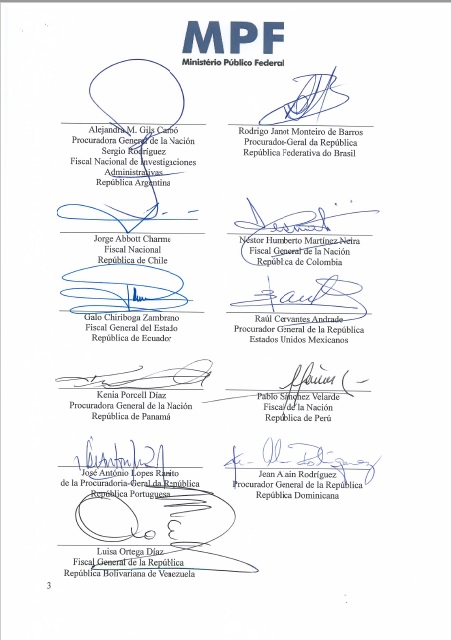 MPF
Ministério Público Federal
Alejandra M. Gils Carbó
Procuradora General de la Nación
Sergio Rodríguez
Fiscal Nacional de Investigaciones
Administrativas
República Argentina
Rodrigo Janot Monteiro de Barros
Procurador-Geral da República
República Federativa do Brasil
Jorge Abbott Charme
Fiscal Nacional
República de Chile
Néstor Humberto Martínez Neira
Fiscal General de la Nación
República de Colombia
Galo Chiriboga Zambrano
Fiscal General del Estado
República de Ecuador
Raúl Cervantes Andrade
Procurador General de la República
Estados Unidos Mexicanos
Kenia Porcell Díaz
Procuradora General de la Nación
República de Panamá
Pablo Sánchez Velarde
Fiscal de la Nación
República de Perú
José António Lopes Ranito
de la Procuradoria-Geral da República
República Portuguesa
Jean Alain Rodríguez
Procurador General de la República
República Dominicana
Luisa Ortega Díaz
Fiscal General de la República
República Bolivariana de Venezuela
3